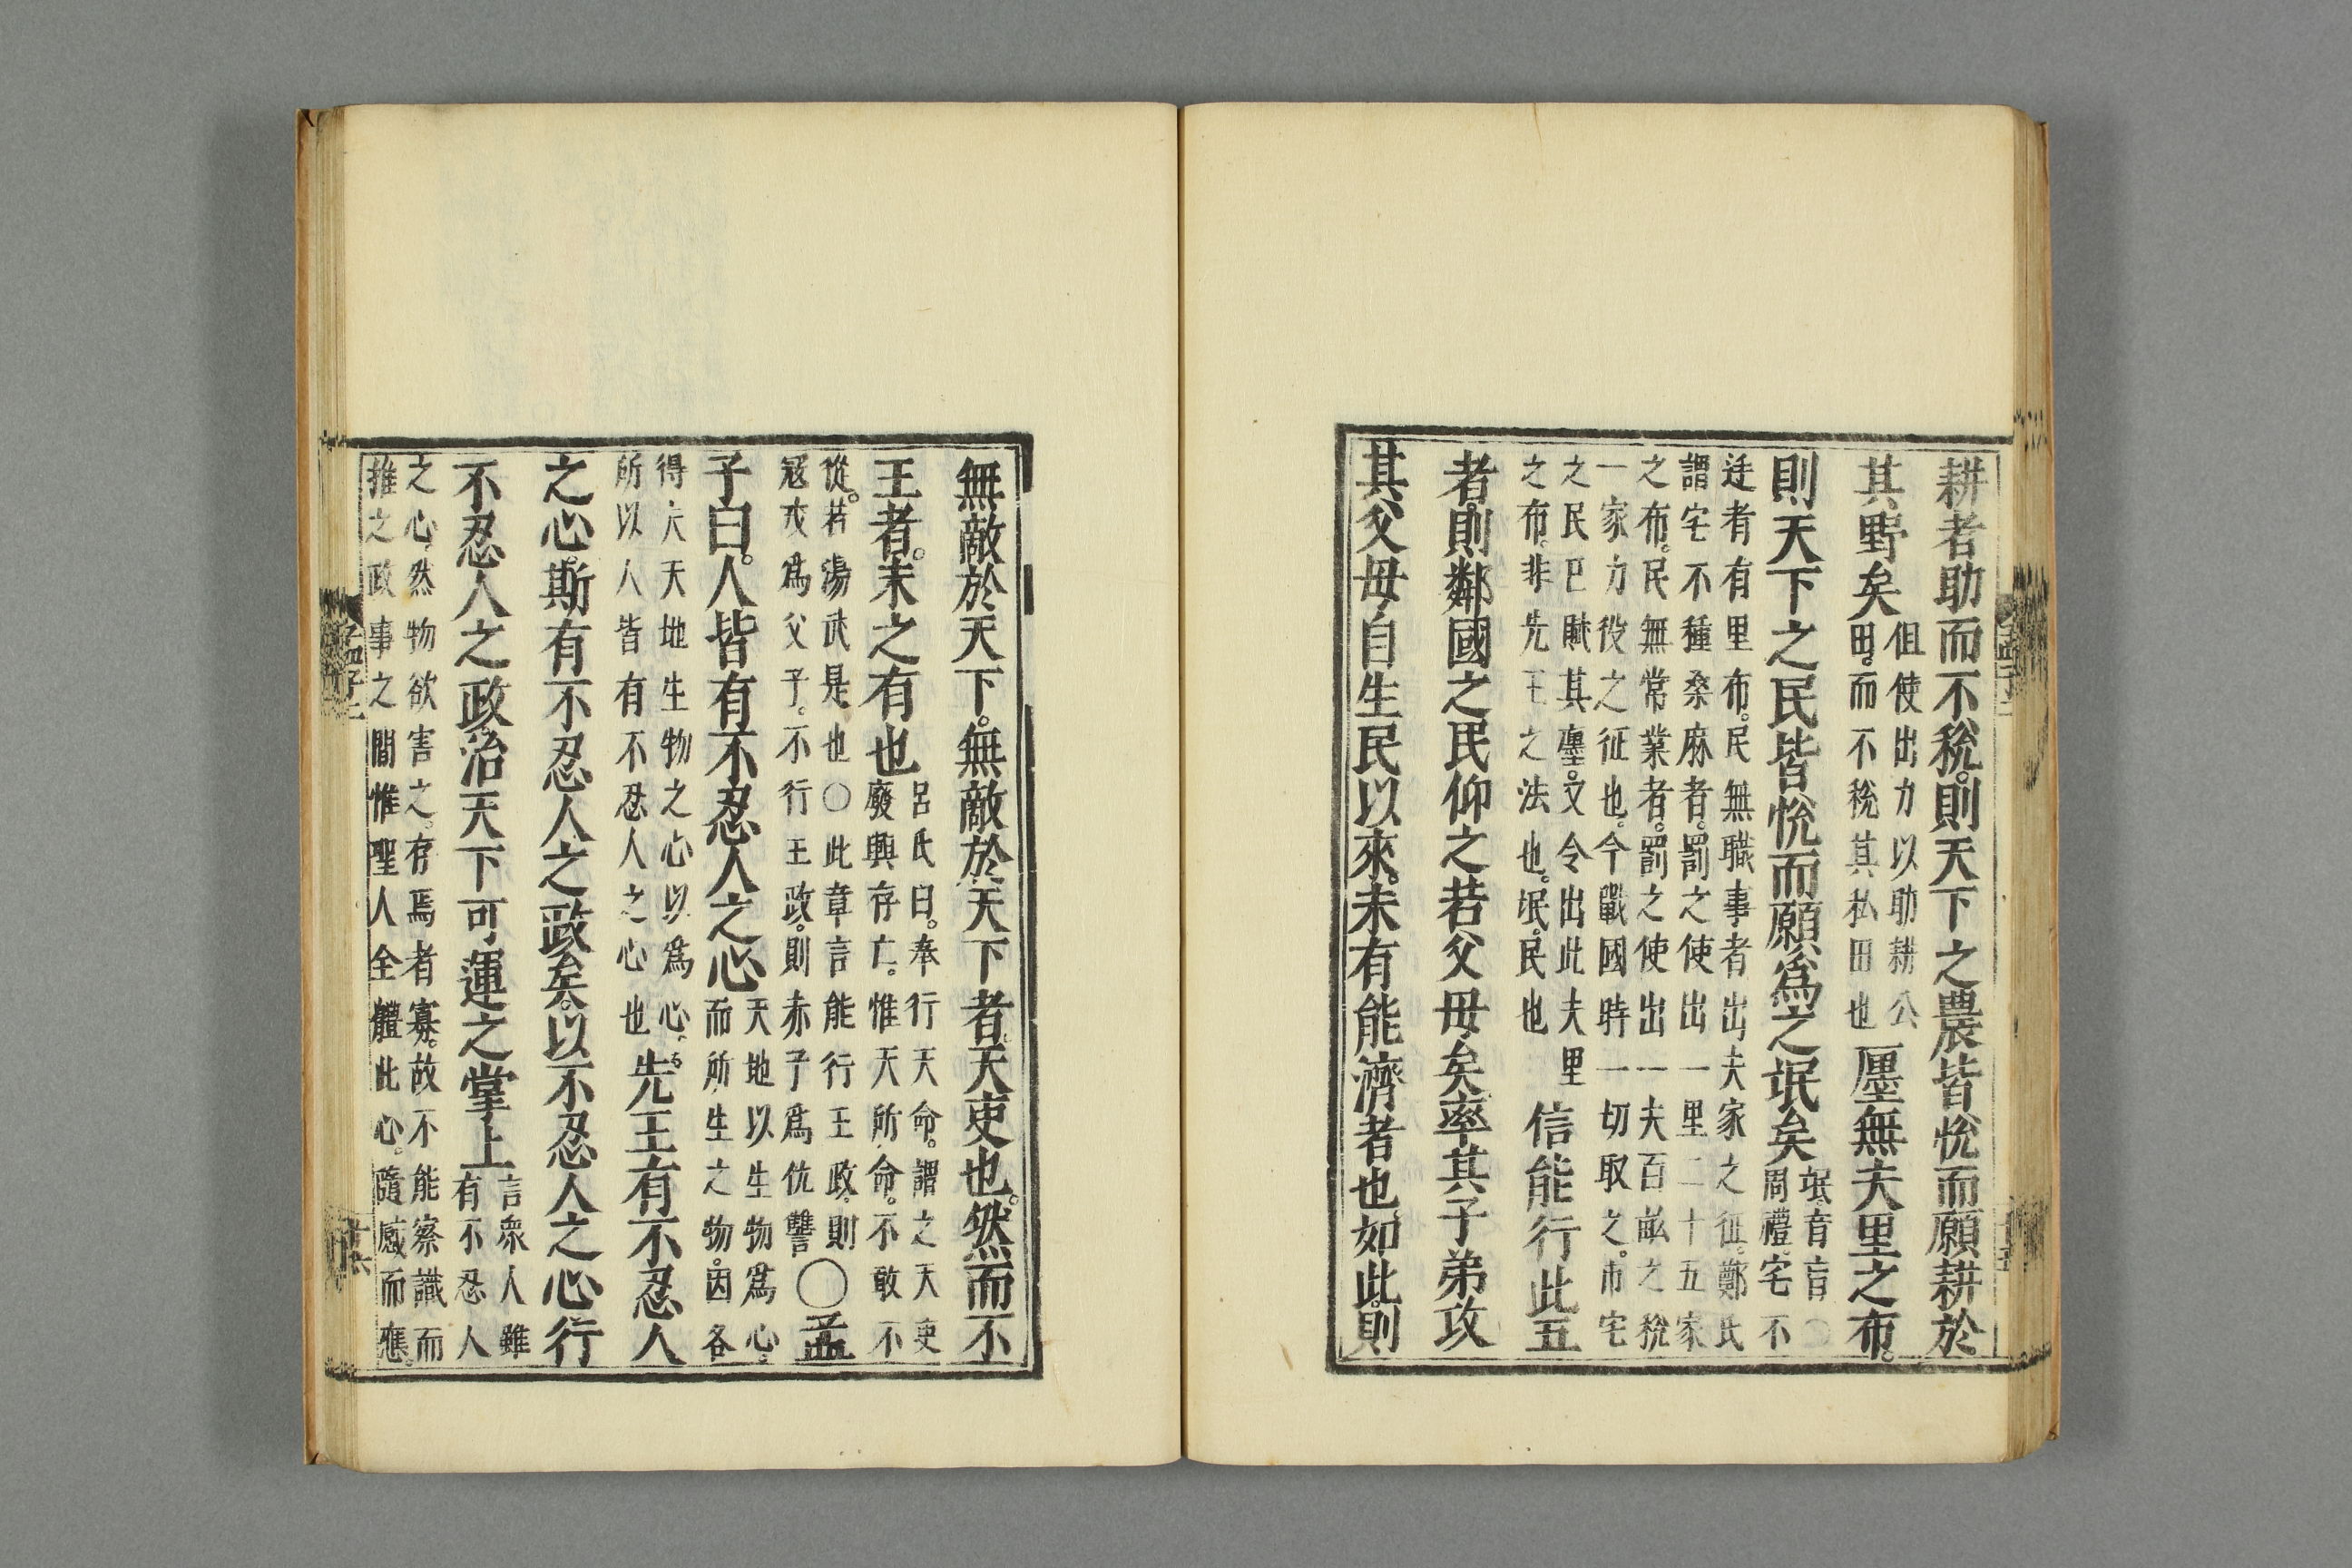 耕者助而不稅。則天下之農皆悅而願耕於
其野矣
但使出力以助耕公
田。而不稅其私田也
廛無夫里之布。
則天下之民皆悅而願爲之氓矣
氓。音盲○
周禮。宅不
𣬉者有里布。民無職事者出夫家之征。鄭氏
謂宅不種桑麻者。罰之使出一里二十五家
之布。民無常業者。罰之使出一夫百畝之稅
一家力役之征也。今戰國時一切取之。市宅
之民已賦其廛。又令出此夫里
之布。非先王之法也。氓。民也
信能行此五
者則鄰國之民仰之若父母矣。率其子弟攻
其父母。自生民以來。未有能濟者也。如此。則
無敵於天下。無敵於天下者。天吏也。然而不
王者。未之有也
呂氏曰。奉行天命。謂之天吏
廢興存亡。惟天所命。不敢不
從。若湯武是也○此章言能行王政。則
寇戎爲父子。不行王政。則赤子爲仇讐
○孟
子曰。人皆有不忍人之心
天地以生物爲心。
而所生之物。因各
得夫天地生物之心以爲心。
所以人皆有不忍人之心也
先王有不忍人
之心。斯有不忍人之政矣。以不忍人之心行
不忍人之政。治天下可運之掌上
言衆人雖
有不忍人
之心。然物欲害之。存焉者寡。故不能察識而
推之政事之間惟聖人全體此心。隨感而應。
孟子二
十六